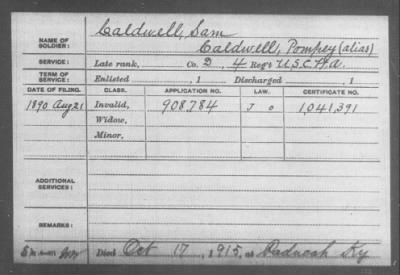 NAME OF SOLDIER: Caldwell, Sam
Caldwell, Pompey (alias)
SERVICE: Late rank, Co. D, 4 Reg't U.S.C.H.A.
TERM OF SERVICE: Enlisted , 1 Discharged , 1
DATE OF FILING. CLASS. APPLICATION NO. LAW. CERTIFICATE NO.
1890 Aug 21 Invalid, 908,784 J o 1,041,391
Widow,
Minor,
ADDITIONAL SERVICES:
REMARKS:
Died Oct 17, 1915, at Paducah Ky